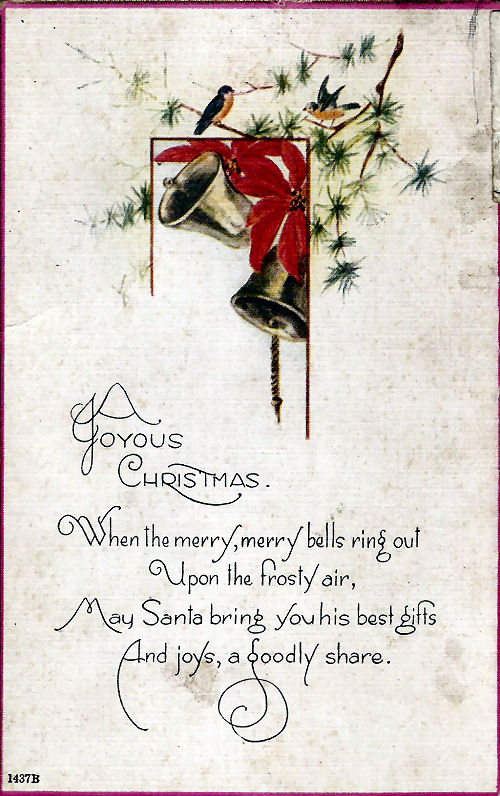 A
Joyous
Christmas.
When the merry, merry bells ring out
Upon the frosty air,
May Santa bring you his best gifts
And joys, a goodly share.
1437B